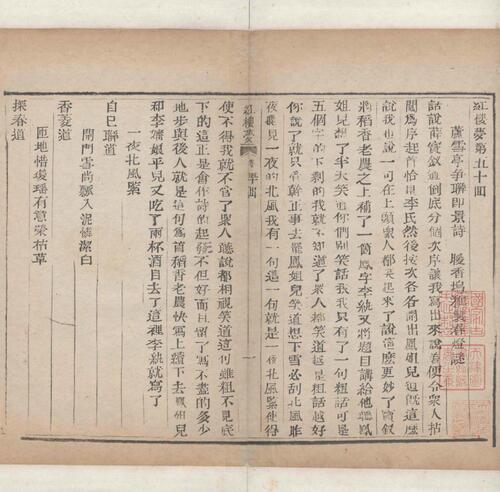 紅樓夢第五十回
蘆雪亭爭聯即景詩　暖香塢雅製春燈謎
話說薛寶釵道到底分個次序讓我寫出來說着便令眾人拈
鬮為序起首恰是李氏然後按次各各開出鳳姐兒道旣這麽
說我也說一句在上頭眾人都笑起來了說這麽更妙了寶釵
將稻香老農之上補了一個鳳字李紈又將題目講給他聽鳳
姐兒想了半天笑道你們別笑話我我只有了一句粗話可是
五個字的下剩的我就不知道了眾人都笑道越是粗話越好
你說了就只管幹正事去罷鳳姐兒笑道想下雪必刮北風昨
夜聽見一夜的北風我有一句這一句就是一夜北風緊使得
紅樓夢
一
使不得我就不管了眾人聽說都相視笑道這句雖粗不見底
下的這正是會作詩的起法不但好而且留了寫不盡的多少
地步與後人就是這句為首稻香老農快寫上續下去鳳姐兒
和李嬸娘平兒又吃了兩杯酒自去了這裡李紈就寫了
一夜北風緊
自己聯道
開門雪尚飄入泥憐潔白
香菱道
匝地惜瓊瑤有意榮枯草
探春道